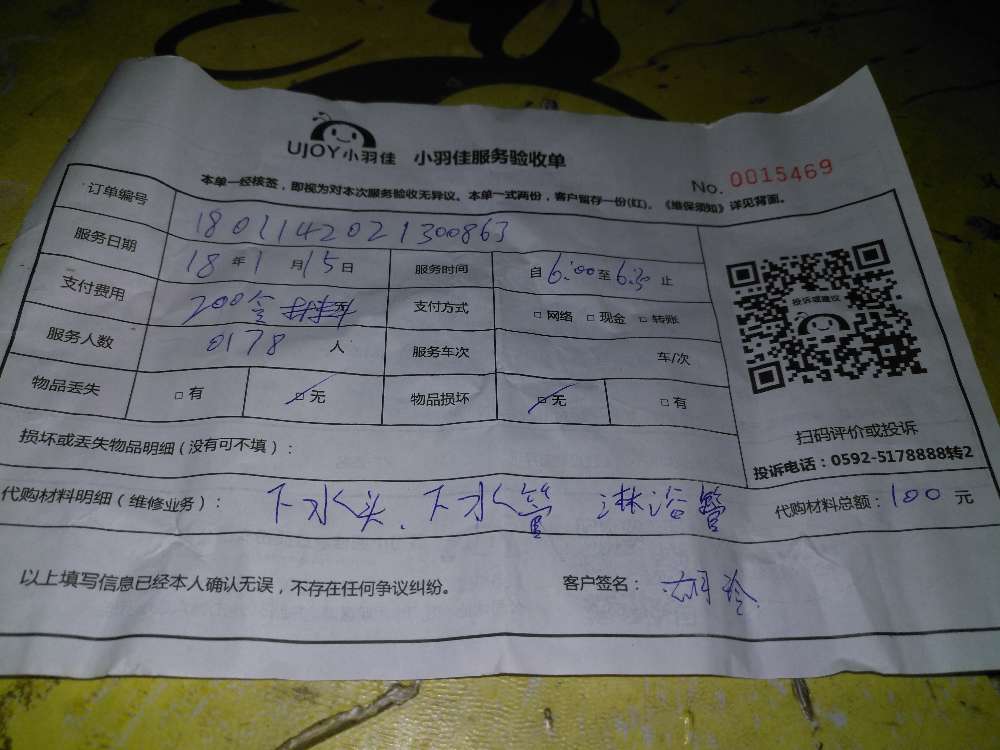 UJOY小羽佳 小羽佳服务验收单
No. 0015469
本单一经核签，即视为对本次服务验收无异议。本单一式两份，客户留存一份(红)。《维保须知》详见背面。
订单编号 1801142021300863
服务日期 18年1月15日 服务时间 自6:00至6:30止
支付费用 200含材料 支付方式 □网络 □现金 □转账
服务人数 0178人 服务车次 车/次
物品丢失 □有 □无 物品损坏 □无 □有
投诉或建议
扫码评价或投诉
投诉电话：0592-5178888转2
损坏或丢失物品明细(没有可不填)：
代购材料明细(维修业务)： 下水头、下水管 淋浴管 代购材料总额：100元
以上填写信息已经本人确认无误，不存在任何争议纠纷。 客户签名：